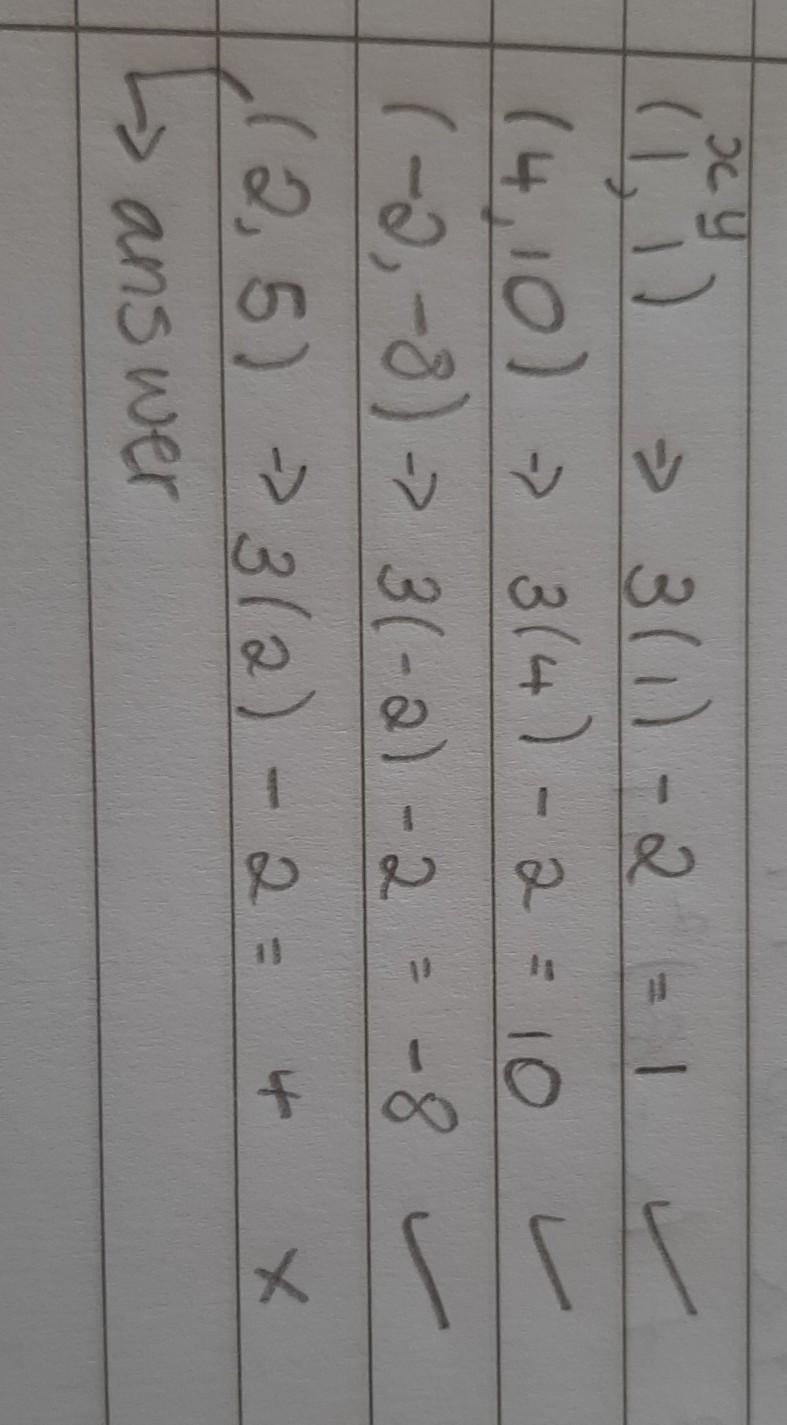 x y
(1, 1) → 3(1) - 2 = 1 ✓
(4, 10) → 3(4) - 2 = 10 ✓
(-2, -8) → 3(-2) - 2 = -8 ✓
(2, 5) → 3(2) - 2 = 4 ×
↳ answer